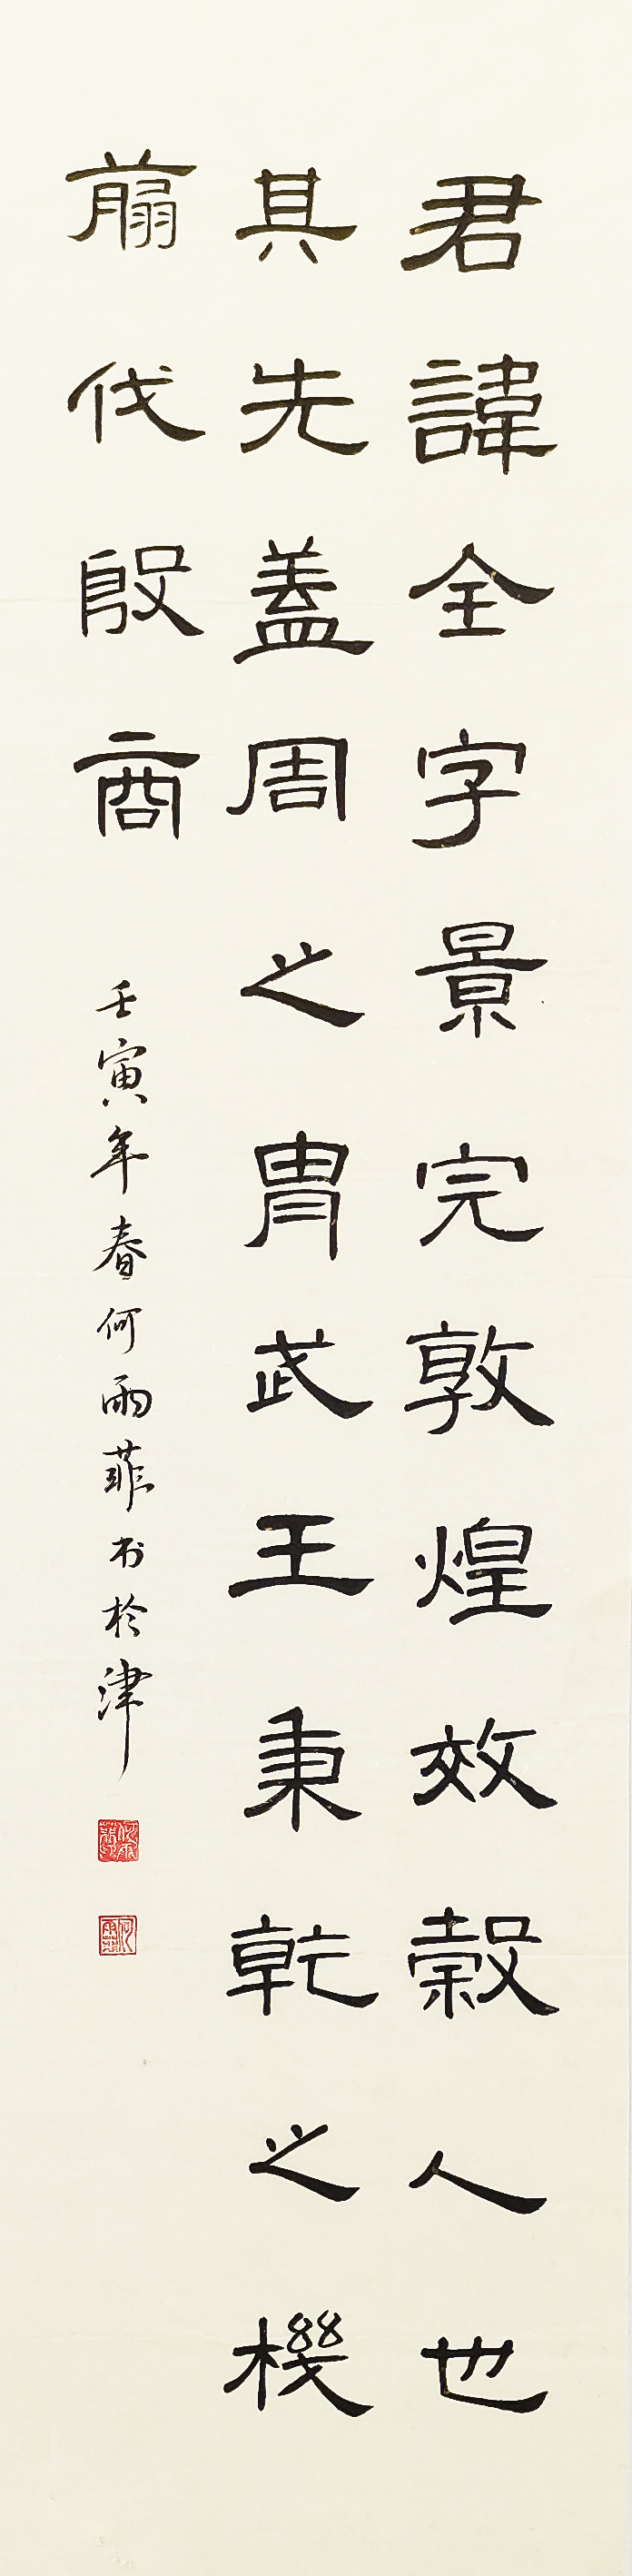 君諱全字景完敦煌效穀人也
其先蓋周之胄武王秉乾之機
翦伐殷商
壬寅年春何雨菲书於津